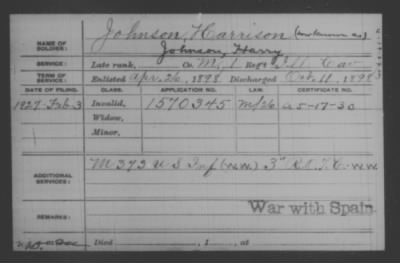 Johnson, Harrison (now known as)
NAME OF SOLDIER: Johnson, Harry
SERVICE: Late rank, Co. M, 1 Reg't Ill Cav
TERM OF SERVICE: Enlisted Apr. 26, 1898 Discharged Oct. 11, 1898
DATE OF FILING. CLASS. APPLICATION NO. LAW. CERTIFICATE NO.
1927-Feb-3 Invalid, 1570345 A 5-17-30
Widow,
Minor,
ADDITIONAL SERVICES: M 373 U S Inf (WW) 3" WW
War with Spain
REMARKS:
Died , 1 , at